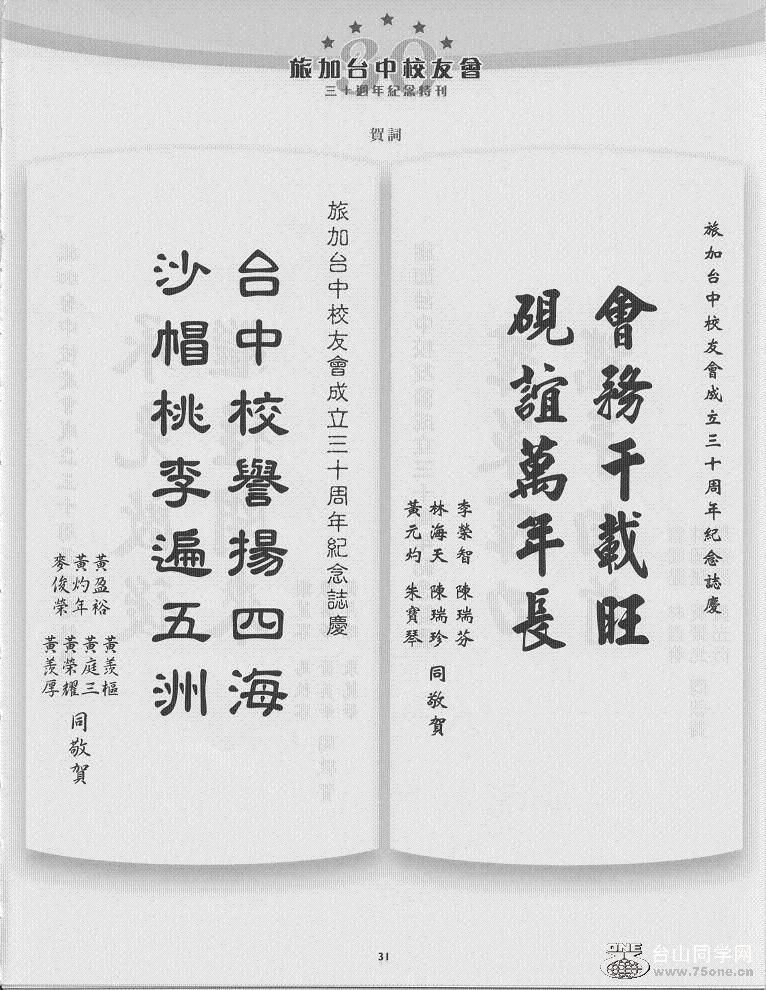 30
旅加台中校友會
三十週年紀念特刊
賀詞
旅加台中校友會成立三十周年紀念誌慶
會務千載旺
硯誼萬年長
李榮智 陳瑞芬
林海天 陳瑞珍
黃元灼 朱寶琴
同敬賀
旅加台中校友會成立三十周年紀念誌慶
台中校譽揚四海
沙帽桃李遍五洲
黃盈裕
黃灼年
麥俊榮
黃羨樞
黃庭三
黃榮耀
黃羨厚
同敬賀
31
ONE
台山同学网
www.75one.cn